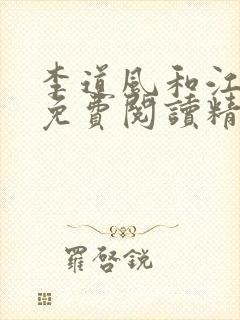 李道風和江
免費閱讀精
羅啓銳